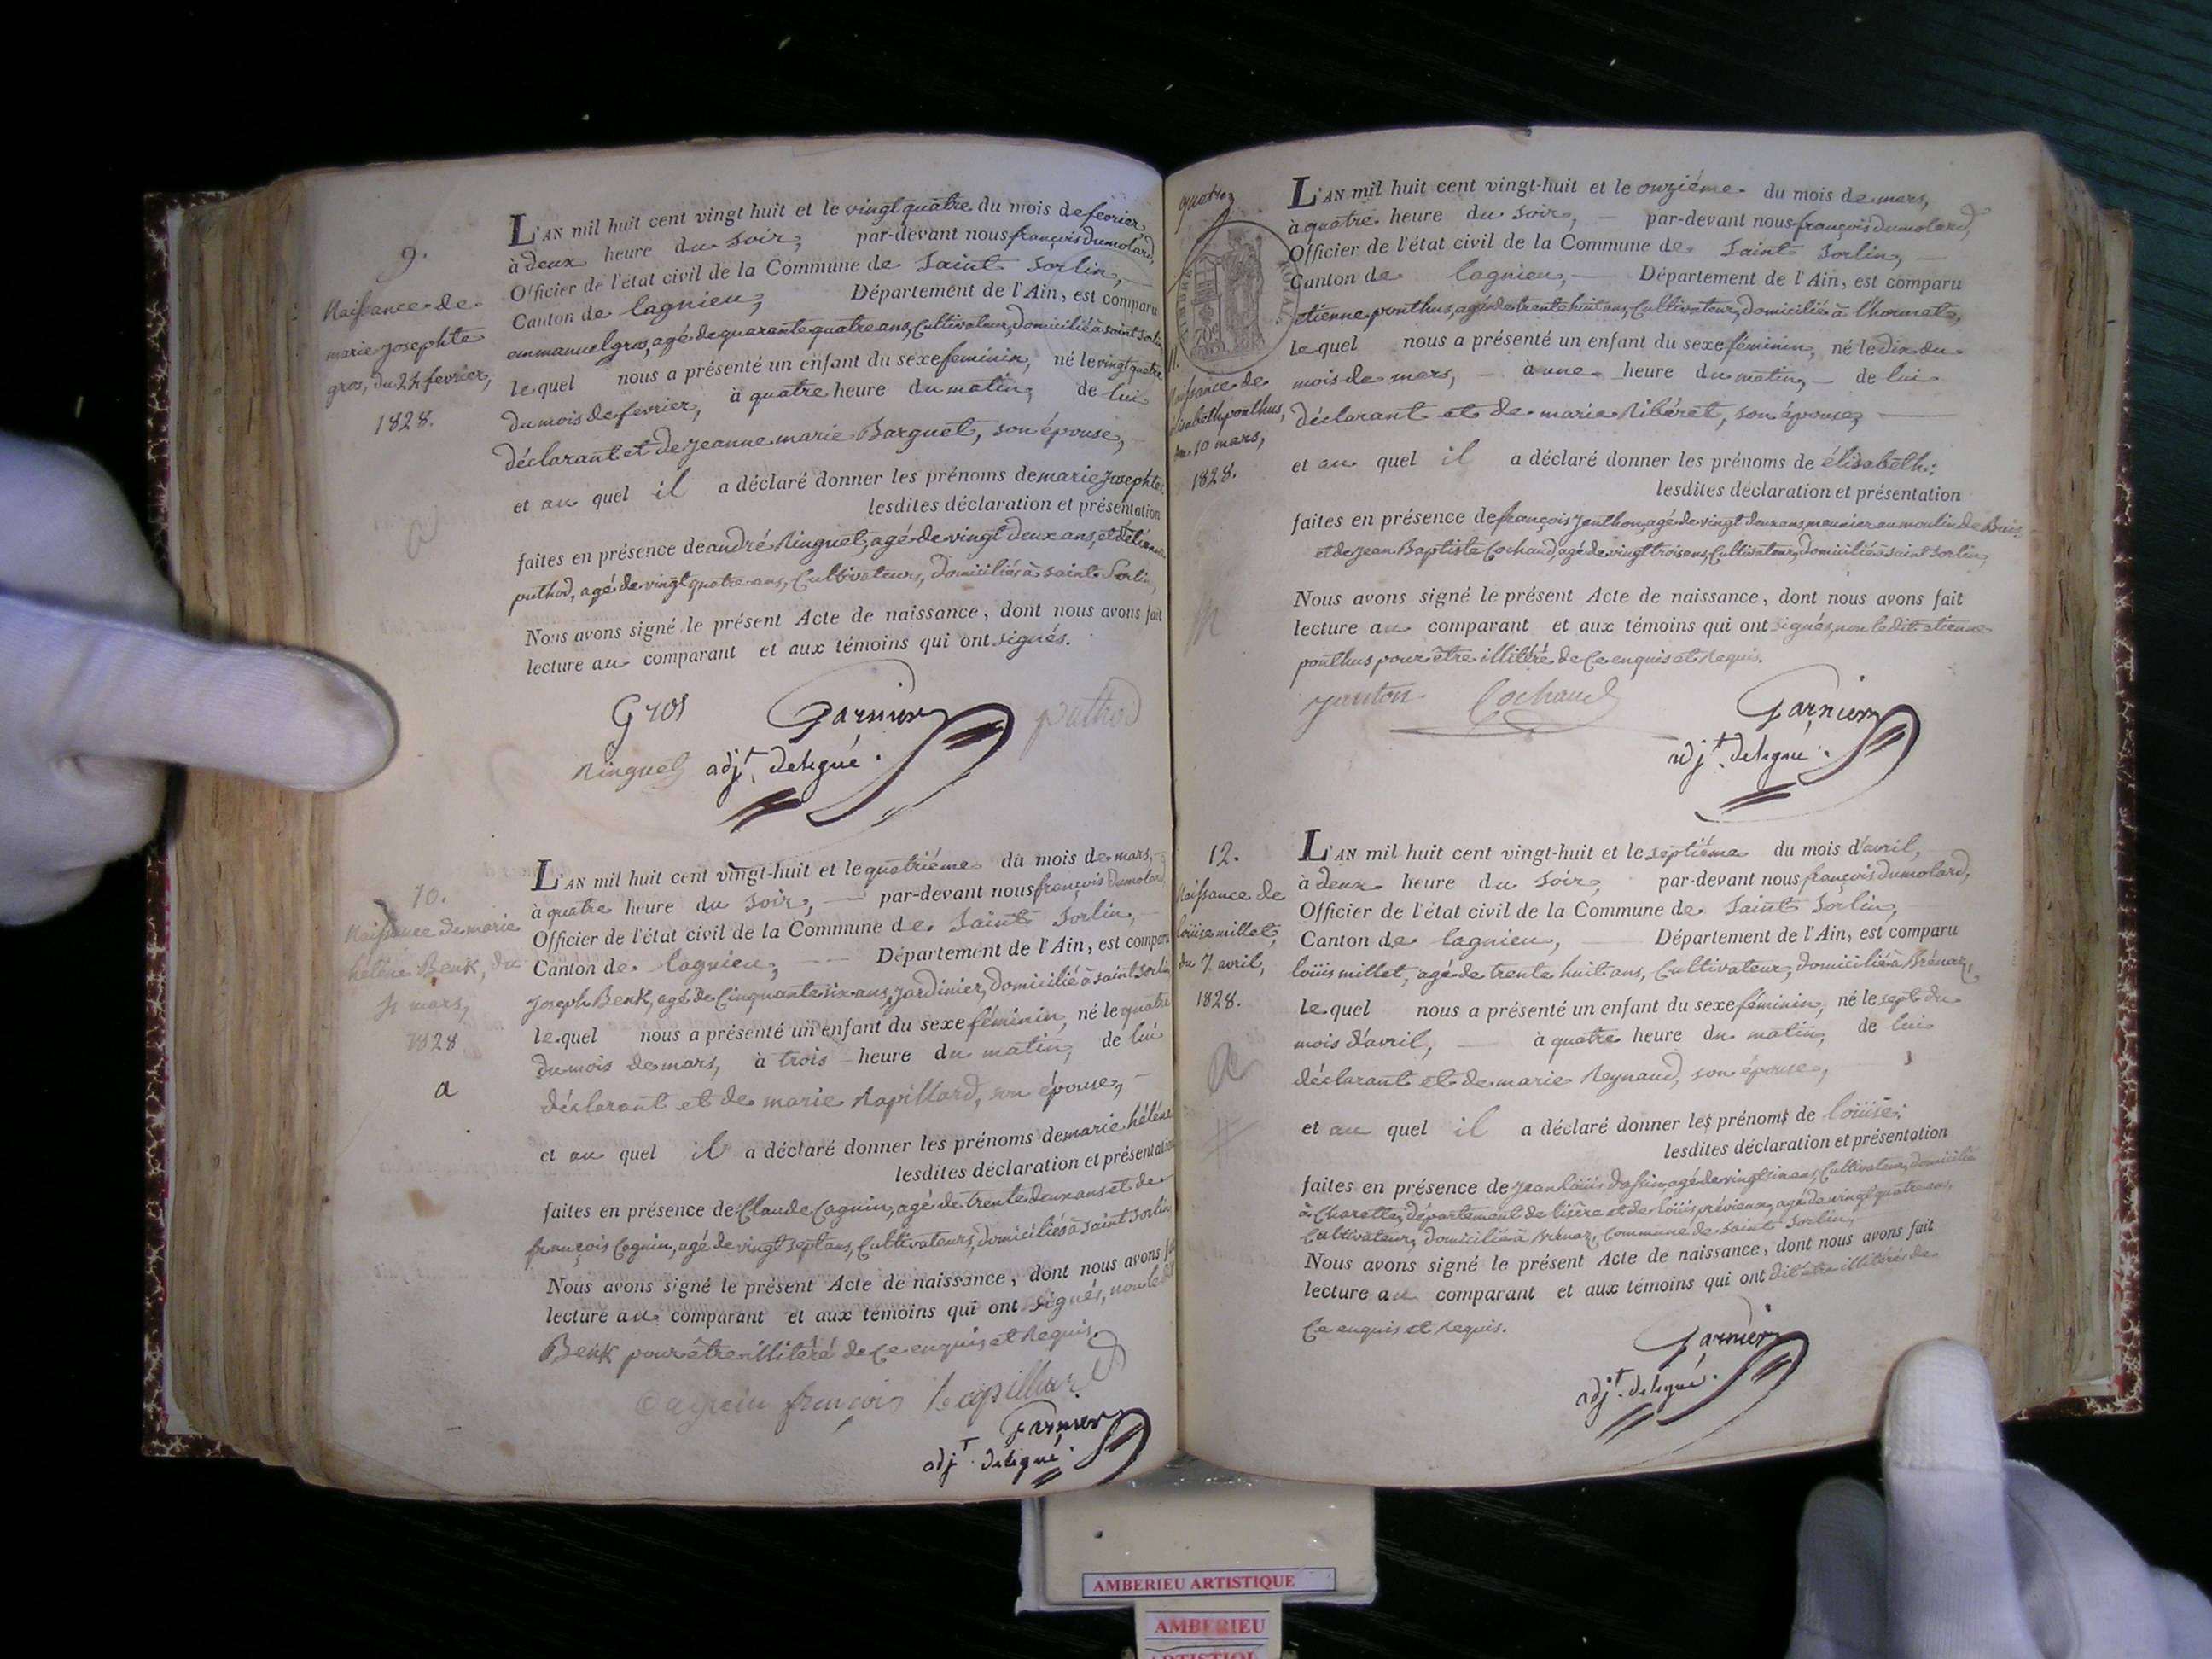 9.
Naissance de
marie josephte
gros, du 24 fevrier,
1828.
L'AN mil huit cent vingt huit et le vingt quatre du mois de fevrier,
à deux heure du soir, par-devant nous françois dumolard,
Officier de l'état civil de la Commune de Saint Sorlin,
Canton de lagnieu, Département de l'Ain, est comparu
emmanuel gros, agé de quarante quatre ans, Cultivateur, domicilié à saint Sorlin
lequel nous a présenté un enfant du sexe feminin, né le vingt quatre
du mois de fevrier, à quatre heure du matin, de lui
déclarant et de jeanne marie Barguet, son épouse,
et au quel il a déclaré donner les prénoms de marie josephte.
lesdites déclaration et présentation
faites en présence de andré Ringuet, agé de vingt deux ans, et d'étienne
puthod, agé de vingt quatre ans, Cultivateurs, domiciliés à saint Sorlin,
Nous avons signé le présent Acte de naissance, dont nous avons fait
lecture au comparant et aux témoins qui ont signés.
Gros Garnier puthod
Ringuet adjt. delegué.
10.
Naissance de marie
hélène Benk, du
4 mars,
1828
a
L'AN mil huit cent vingt-huit et le quatriéme du mois de mars,
à quatre heure du soir, par-devant nous françois Dumolard,
Officier de l'état civil de la Commune de Saint Sorlin,
Canton de lagnieu, Département de l'Ain, est comparu
joseph Benk, agé de Cinquante six ans, jardinier, domicilié à saint Sorlin
lequel nous a présenté un enfant du sexe féminin, né le quatre
du mois de mars, à trois heure du matin, de lui
déclarant et de marie Rapillard, son épouse,
et au quel il a déclaré donner les prénoms de marie hélène
lesdites déclaration et présentation
faites en présence de Claude Cagnin, agé de trente deux ans et de
françois Cagnin, agé de vingt sept ans, Cultivateurs, domiciliés à saint Sorlin
Nous avons signé le présent Acte de naissance, dont nous avons
lecture au comparant et aux témoins qui ont signés, non le
Benk pour être illitéré de Ce enquis et Requis.
Cagnin françois
Garnier
adjt. delegué.
quatre
ROYAL
11.
Naissance de
élisabeth ponthus,
du 10 mars,
1828.
L'AN mil huit cent vingt-huit et le onziéme du mois de mars,
à quatre heure du soir, par-devant nous françois dumolard,
Officier de l'état civil de la Commune de Saint Sorlin,
Canton de lagnieu, Département de l'Ain, est comparu
etienne ponthus, agé de trente huit ans, Cultivateur, domicilié à
lequel nous a présenté un enfant du sexe féminin, né le dix du
mois de mars, à une heure du matin, de lui
déclarant et de marie Ribéret, son épouse,
et au quel il a déclaré donner les prénoms de élisabeth:
lesdites déclaration et présentation
faites en présence de françois janthon, agé de vingt deux ans meunier au moulin de Buis
et de jean Baptiste Cochaud, agé de vingt trois ans, Cultivateur, domicilié à saint Sorlin,
Nous avons signé le présent Acte de naissance, dont nous avons fait
lecture au comparant et aux témoins qui ont signés, non ledit etienne
ponthus pour être illitéré de Ce enquis et Requis.
janton Cochaud Garnier
adjt. delegué.
12.
Naissance de
loüise millet,
du 7 avril,
1828.
L'AN mil huit cent vingt-huit et le septiéme du mois d'avril,
à deux heure du soir, par-devant nous françois dumolard,
Officier de l'état civil de la Commune de Saint Sorlin,
Canton de lagnieu, Département de l'Ain, est comparu
loüis millet, agé de trente huit ans, Cultivateur, domicilié à Brénaz,
lequel nous a présenté un enfant du sexe féminin, né le sept du
mois d'avril, à quatre heure du matin, de lui
déclarant et de marie Reynaud, son épouse,
et au quel il a déclaré donner les prénoms de loüise:
lesdites déclaration et présentation
faites en présence de jean loüis agé de vingt six ans, Cultivateur, domicilié
à Charette, département de lisère et de loüis prévieux, agé de vingt quatre ans,
Cultivateur, domicilié à Brénaz, Commune de Saint Sorlin,
Nous avons signé le présent Acte de naissance, dont nous avons fait
lecture au comparant et aux témoins qui ont dit être illitérés de
Ce enquis et Requis.
Garnier
adjt. delegué.
AMBERIEU ARTISTIQUE
AMBERIEU
ARTISTIQUE